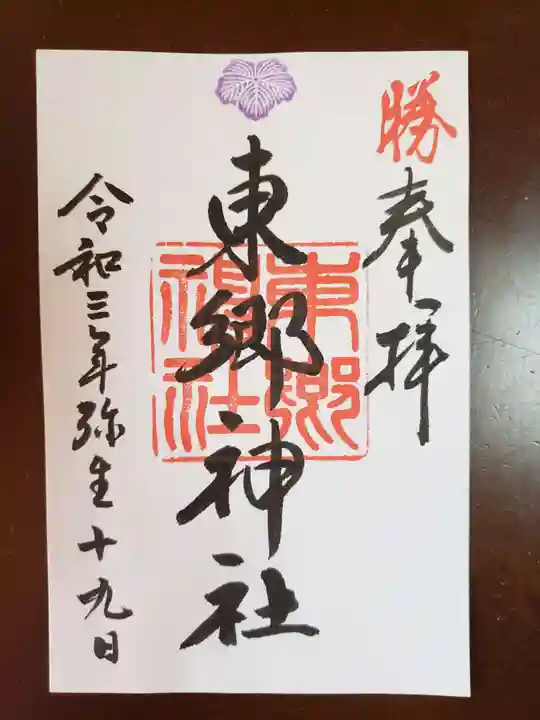 勝
奉拝
東郷神社
東郷神社
令和三年弥生十九日